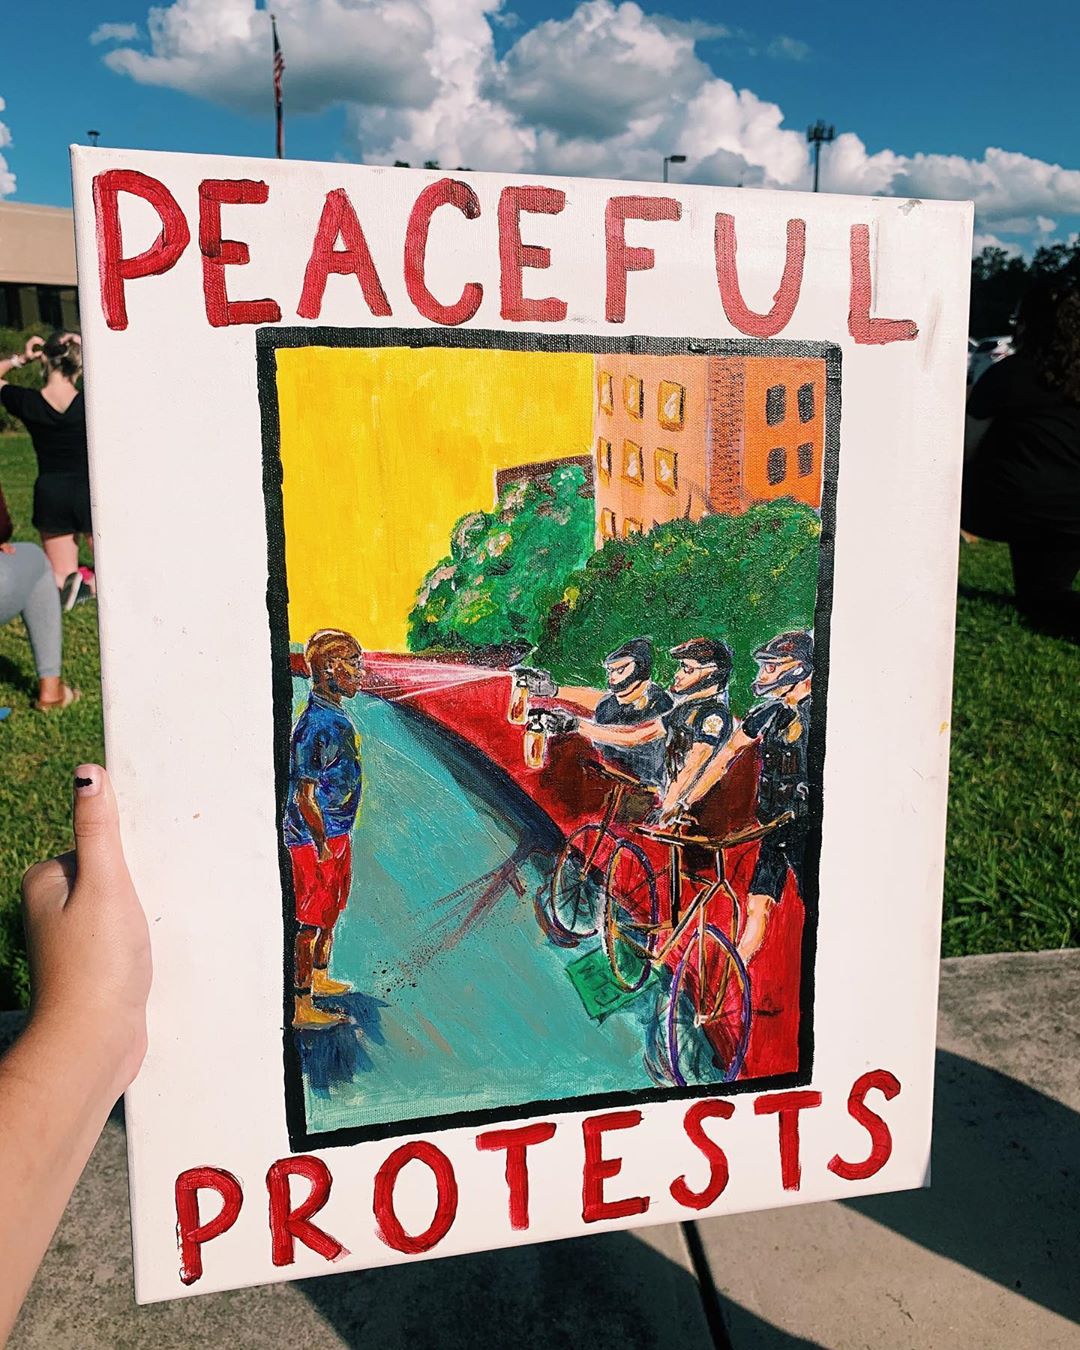 PEACEFUL
PROTESTS